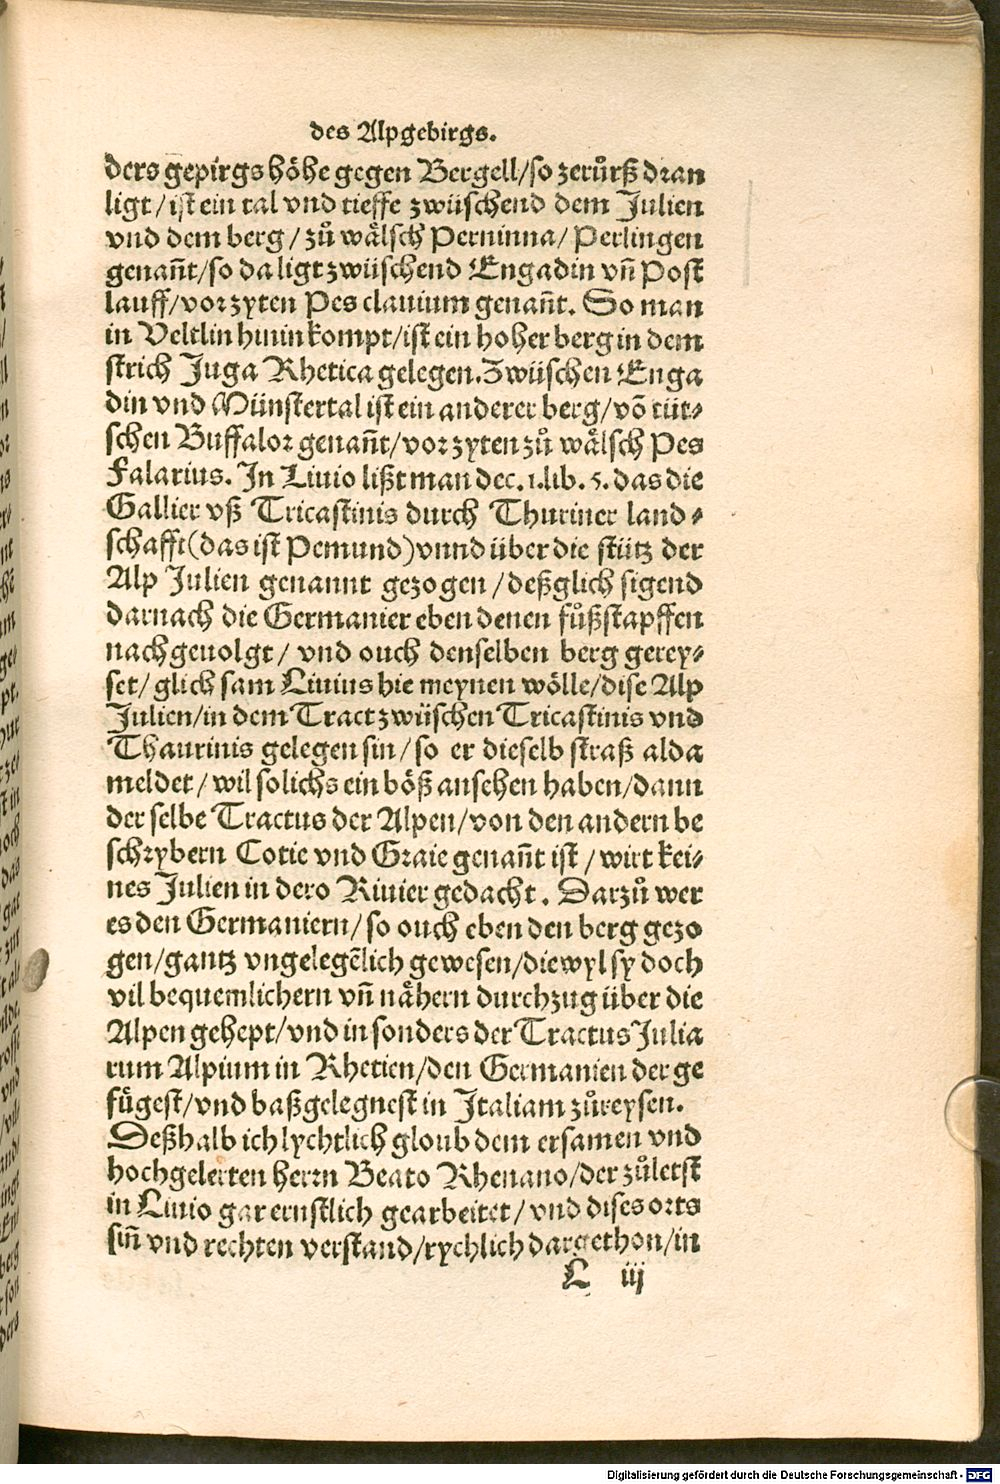 des Alpgebirgs.
ders gepirgs höhe gegen Bergell/so zerůrß dran
ligt/ist ein tal vnd tieffe zwüschend dem Julien
vnd dem berg/zů wålsch Perninna/Perlingen
genañt/so da ligt zwüschend Engadin vñ Post
lauff/vor zyten Pes clauium genañt. So man
in Veltlin hinin kompt/ist ein hoher berg in dem
strich Juga Rhetica gelegen. Zwüschen Enga
din vnd Münstertal ist ein anderer berg/võ tüt⸗
schen Buffalor genañt/vor zyten zů wålsch Pes
Falarius. In Liuio lißt man dec. 1. lib. 5. das die
Gallier vß Tricastinis durch Thuriner land⸗
schafft(das ist Pemund)vnnd über die stütz der
Alp Julien genannt gezogen/deßglich sigend
darnach die Germanier eben denen fůßstapffen
nachgeuolgt/ vnd ouch denselben berg gerey⸗
set/glich sam Liuius hie meynen wölle/dise Alp
Julien/in dem Tract zwüschen Tricastinis vnd
Thaurinis gelegen sin/so er dieselb straß alda
meldet/wil solichs ein böß ansehen haben/dann
der selbe Tractus der Alpen/von den andern be
schrybern Cotie vnd Graie genañt ist/wirt kei⸗
nes Julien in dero Riuier gedacht. Darzů wer
es den Germaniern/so ouch eben den berg gezo
gen/gantz vngelegẽlich gewesen/diewyl sy doch
vil bequemlichern vñ nåhern durchzug über die
Alpen gehept/vnd in sonders der Tractus Julia
rum Alpium in Rhetien/den Germanien der ge
fügest/vnd baßgelegnest in Italiam zůreysen.
Deßhalb ich lychtlich gloub dem ersamen vnd
hochgelerten herrn Beato Rhenano/der zůletst
in Liuio gar ernstlich gearbeitet/vnd dises orts
siñ vnd rechten verstand/rychlich dargethon/in
L iij
Digitalisierung gefördert durch die Deutsche Forschungsgemeinschaft - DFG